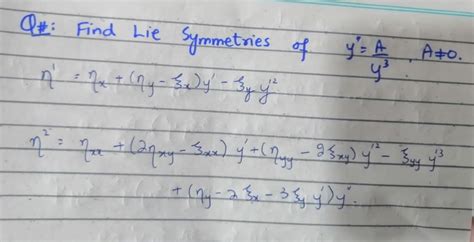 Q#: Find Lie Symmetries of y'' = A/y³, A≠0.
η¹ = ηx + (ηy - ξx)y' - ξy y'²
η² = ηxx + (2ηxy - ξxx) y' + (ηyy - 2ξxy) y'² - ξyy y'³
+ (ηy - 2ξx - 3ξy y') y''.